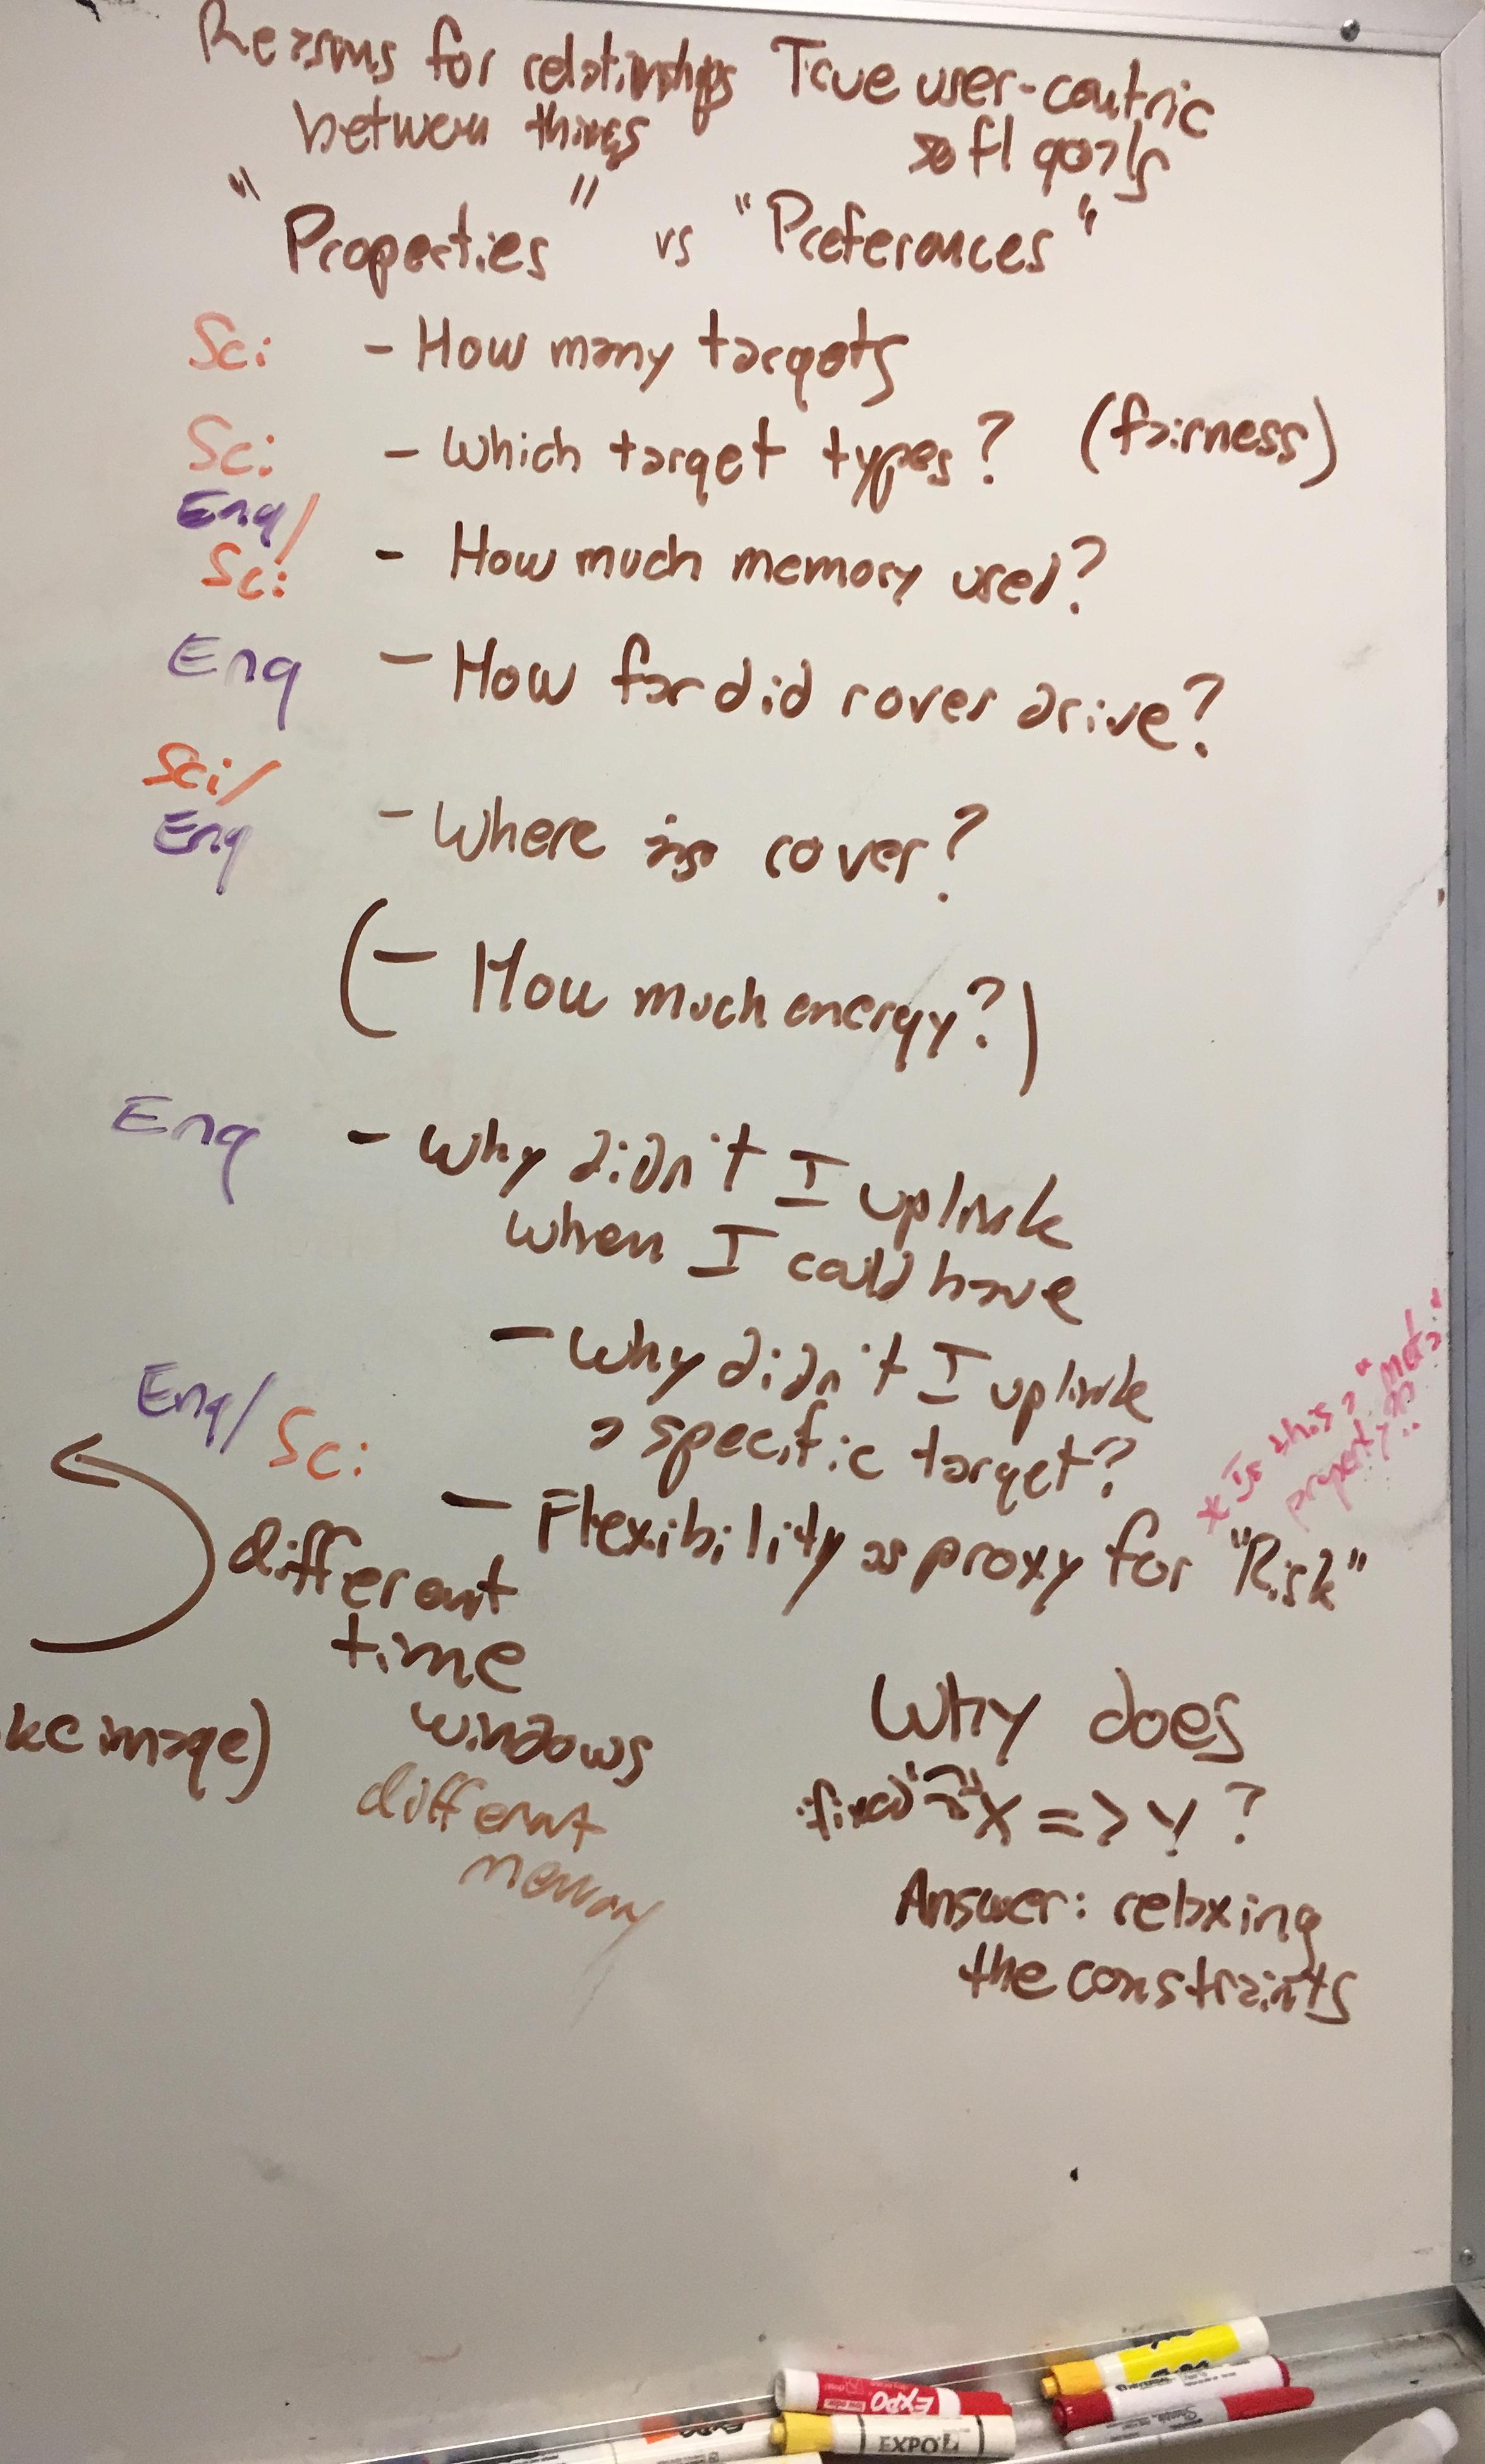 Reasons for relationships True user-centric
between things soft goals
"Properties" vs "Preferences"
Sci - How many targets
Sci - Which target types? (fairness)
Eng/
Sci - How much memory used?
Eng - How far did rover drive?
Sci/
Eng - Where is rover?
(- How much energy?)
Eng - Why didn't I uplink
when I could have
- Why didn't I uplink
Eng/Sci a specific target?
* Is this a "meta"
property??
- Flexibility as proxy for "Risk"
different
time
windows
different
memory
ke image)
Why does
X => Y?
Answer: relaxing
the constraints
EXPO
EXPO
EXPO